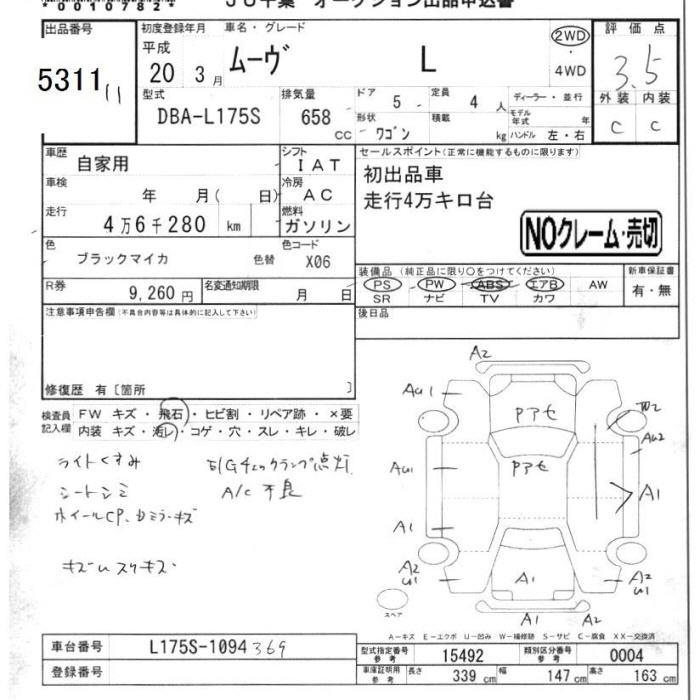 *00107827*
JU千葉 オークション出品申込書
出品番号
5311
11
初度登録年月
平成
20 3月
車名・グレード
ムーヴ L
2WD
4WD
評価点
3.5
外装 内装
C C
型式
DBA-L175S
排気量
658 CC
ドア 5
定員 4 人
ディーラー・並行
形状 ワゴン
積載 kg
モデル年式 年
ハンドル 左・右
車歴 自家用
シフト IAT
車検 年 月( 日)
冷房 AC
走行 4万6千280 km
燃料 ガソリン
色 ブラックマイカ 色替
色コード X06
R券 9,260円
名変通知期限 月 日
セールスポイント(正常に機能するものに限ります)
初出品車
走行4万キロ台
NOクレーム・売切
装備品(純正品に限り○をつけてください)
PS PW ABS エアB AW
SR ナビ TV カワ
新車保証書
有・無
注意事項申告欄(不具合内容等は具体的に記入して下さい)
修復歴 有〔箇所 〕
後日品
検査員記入欄
FW キズ・飛石・ヒビ割・リペア跡・×要
内装 キズ・汚レ・コゲ・穴・スレ・キレ・破レ
ライトくすみ
シートシミ
A/C不良
A2
AU1
Pアセ
W2
AU2
Pアセ
AU1
A1
A1
A2
U1
A1
A2
U1
A1
A2
スペア
A-キズ E-エクボ U-凹み W-補修跡 S-サビ C-腐食 XX-交換済
車台番号 L175S-1094369
登録番号
型式指定番号 参考 15492
類別区分番号 参考 0004
車庫証明用 参考 長さ 339 cm 幅 147 cm 高さ 163 cm